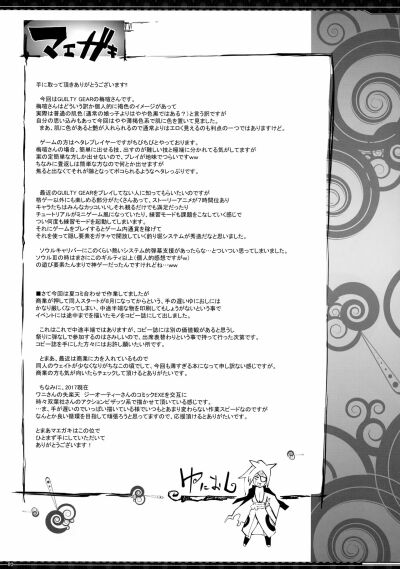 マエガキ
手に取って頂きありがとうございます!!
今回はGUILTY GEARの梅喧さんです。
梅喧さんはどういう訳か個人的に褐色のイメージがあって
実際は普通の肌色(通常の娘っ子よりはやや色黒ではある?)と言う訳ですが
自分の思い込みもあって今回はやや薄褐色系で肌に色を置いて見ました。
まあ、肌に色があると艶が入れられるので通常よりはエロく見えるのも利点の一つではありますけど。
ゲームの方はヘタレプレイヤーですがちびちびとやっております。
梅喧さんの場合、簡単に出せる技、出すのが難しい技と極端に分かれてる気がしてますが
案の定簡単な方しか出せないので、プレイが地味でつらいですww
特に畳返しは簡単な方なので何とか出せますが
焦ると出なくてそれが隙となってボコられるようなヘタレっぷりです。
最近のGUILTY GEARをプレイしてない人に知ってもらいたいのですが
格ゲー以外にも楽しめる部分がたくさんあって、ストーリーアニメが7時間位あり
キャラたちはみんなカッコいいしそれ観るだけでも満足だったり
チュートリアルがミニゲーム風になっていたり、練習モードも課題をこなしていく感じで
つい何度も練習モードを起動してしまいます。
それにゲームをプレイするとゲーム内通貨を稼げて
それを使って隠し要素をガチャで開放していく釣り堀システムが秀逸だなと思いました。
ソウルキャリバーにこのくらい熱いシステム的な弾幕支援があったらな…とついつい思ってしまいました。
ソウルⅢの時はまさにこのギルティ以上(個人的感想ですがw)
の遊び要素たんまりで神ゲーだったんですけれどね…ww
■さて今回は夏コミ合わせで作業してましたが
商業が押して同人スタートが8月になってからという、手の遅いゆにおしには
かなり厳しくなってしまい、中途半端な物を印刷してもしょうがないという事で
イベントには途中まで描いたモノをコピー誌にして出しました。
これはこれで中途半端ではありますが、コピー誌には別の価値観があると思うし
祭りに弾なしで参加するのはさみしいので、出席表替わりという事で持って行た次第で
コピー誌を手にした方々にはお許し願いたい所です。
とまあ、最近は商業に力を入れているもので
同人のウェイトが少なくなりがちなこの頃でして、今回も薄すぎる本になって申し訳ない感じですが、
商業の方も気が向いたらチェックして頂けるとありがたいです。
ちなみに、2017現在
ワニさんの失楽天 ジーオーティーさんのコミックEXEを交互に
時々双葉社さんのアクションピザッツ系で描かせて頂いている感じです。
…ま、手が遅いのでいっぱい描いている様でいつもとあまり変わらない作業スピードなのですが
なんとか良い循環を目指して頑張ろうと思ってますので、応援頂けるとありがたいです。
とまあマエガキはこの位で
ひとまず手にしていただいて
ありがとうございます!
ゆにおし